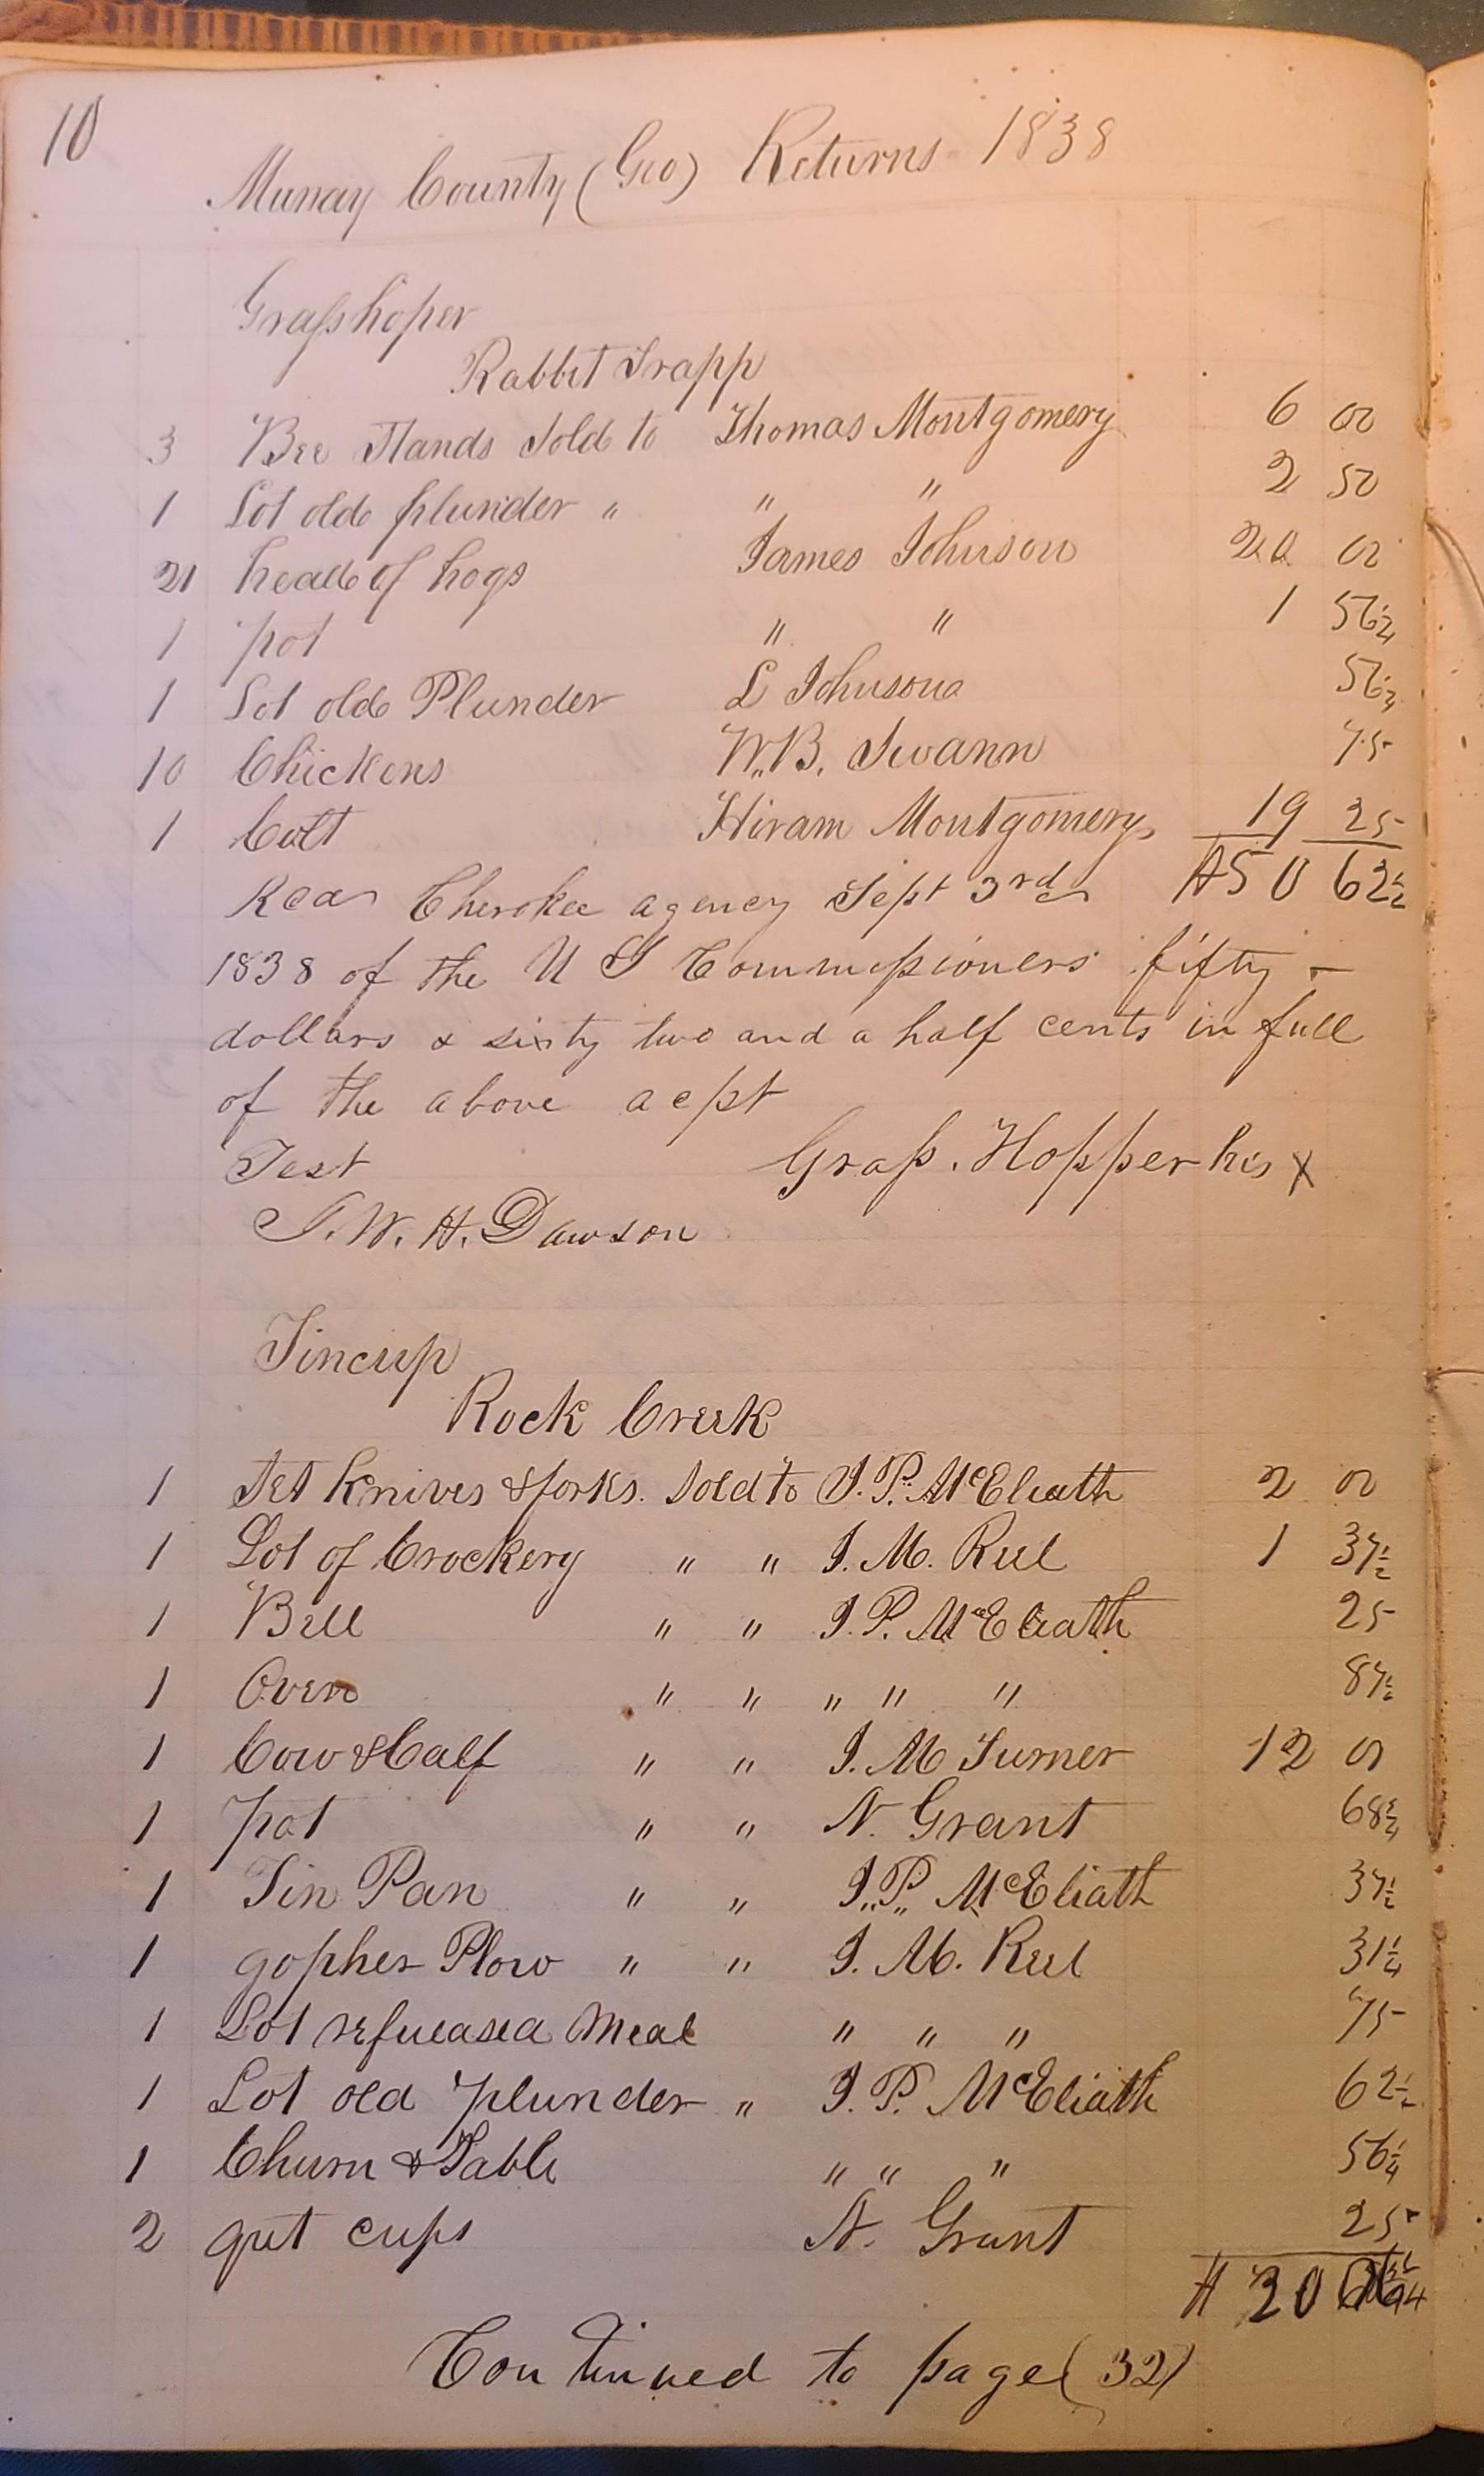 10
Murray County (Geo) Returns 1838
Grasshoper
Rabbit Trapp
3 Bee Stands Sold to Thomas Montgomery 6 00
1 Lot old plunder " " " 2 50
21 head of hogs James Johnson 20 00
1 pot " " 1 56¼
1 Lot old Plunder L Johnson 56¼
10 Chickens W.B. Swann 75
1 Colt Hiram Montgomery 19 25
Recd Cherokee agency Sept 3rd $50 62½
1838 of the U S Commissioners fifty —
dollars & sixty two and a half cents in full
of the above acpt
Test Grass. Hopper his x
T. W. H. Dawson
Tincup
Rock Creek
1 Set Knives & forks. Sold to J. P. McEliath 2 00
1 Lot of Crockery " " J. M. Reel 1 37½
1 Bell " " J. P. McEliath 25
1 Oven " " " " " 87½
1 Cow & Calf " " J. M Turner 12 00
1 pot " " N. Grant 68¾
1 Tin Pan " " J. P. McEliath 37½
1 gopher Plow " " J. M. Reel 31¼
1 Lot Meal " " " 75
1 Lot old plunder " J. P. McEliath 62½
1 Churn & Table " " " 56¼
2 cups N. Grant 25
$ 20
Continued to page (32)